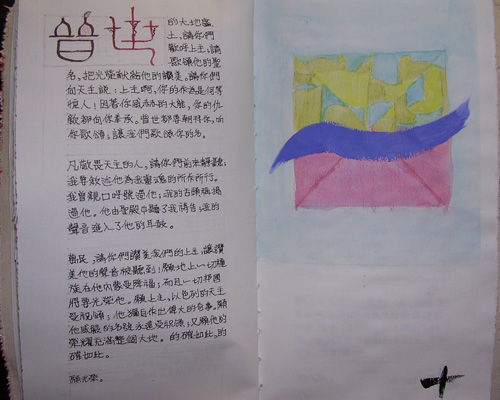 普世
的大地疆
土,請你們
歡呼上主;請
歌頌他的聖
名,把光榮獻給他的讚美。請你們
向天主說:上主啊,你的作為是何等
驚人!因著你威赫的大能,你的仇
敵都向你奉承。普世都要朝拜你,向
你歌頌;讓它們歌頌你的名。
凡敬畏天主的人,請你們前來靜聽;
我要敘述他為我靈魂的所作所行。
我曾親口呼號過他;我的舌頭稱揚
過他。他由聖殿中聽了我禱告;我的
聲音進入了他的耳鼓。
萬民,請你們讚美我們的上主;讓讚
美他的聲音被聽到!願地上一切種
族在他內蒙受降福;而且一切邦國
將要光榮他。願上主,以色列的天主
受祝頌;他獨自作出偉大的奇事。願
他威嚴的名號永遠受祝頌;又願他的
榮耀充滿整個大地。的確如此,的
確如此。
願光榮。